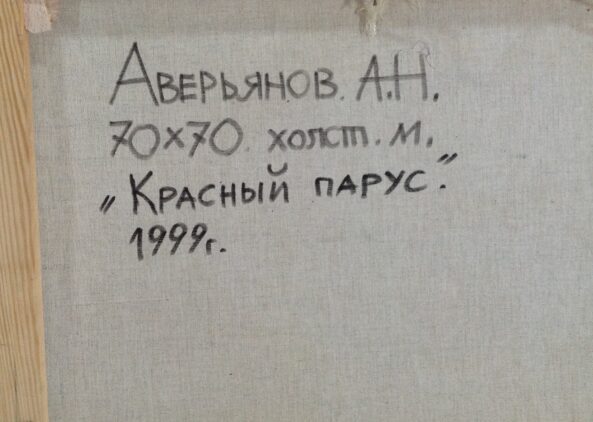 Аверьянов. А.Н.
70х70. холст. м.
„Красный парус."
1999г.